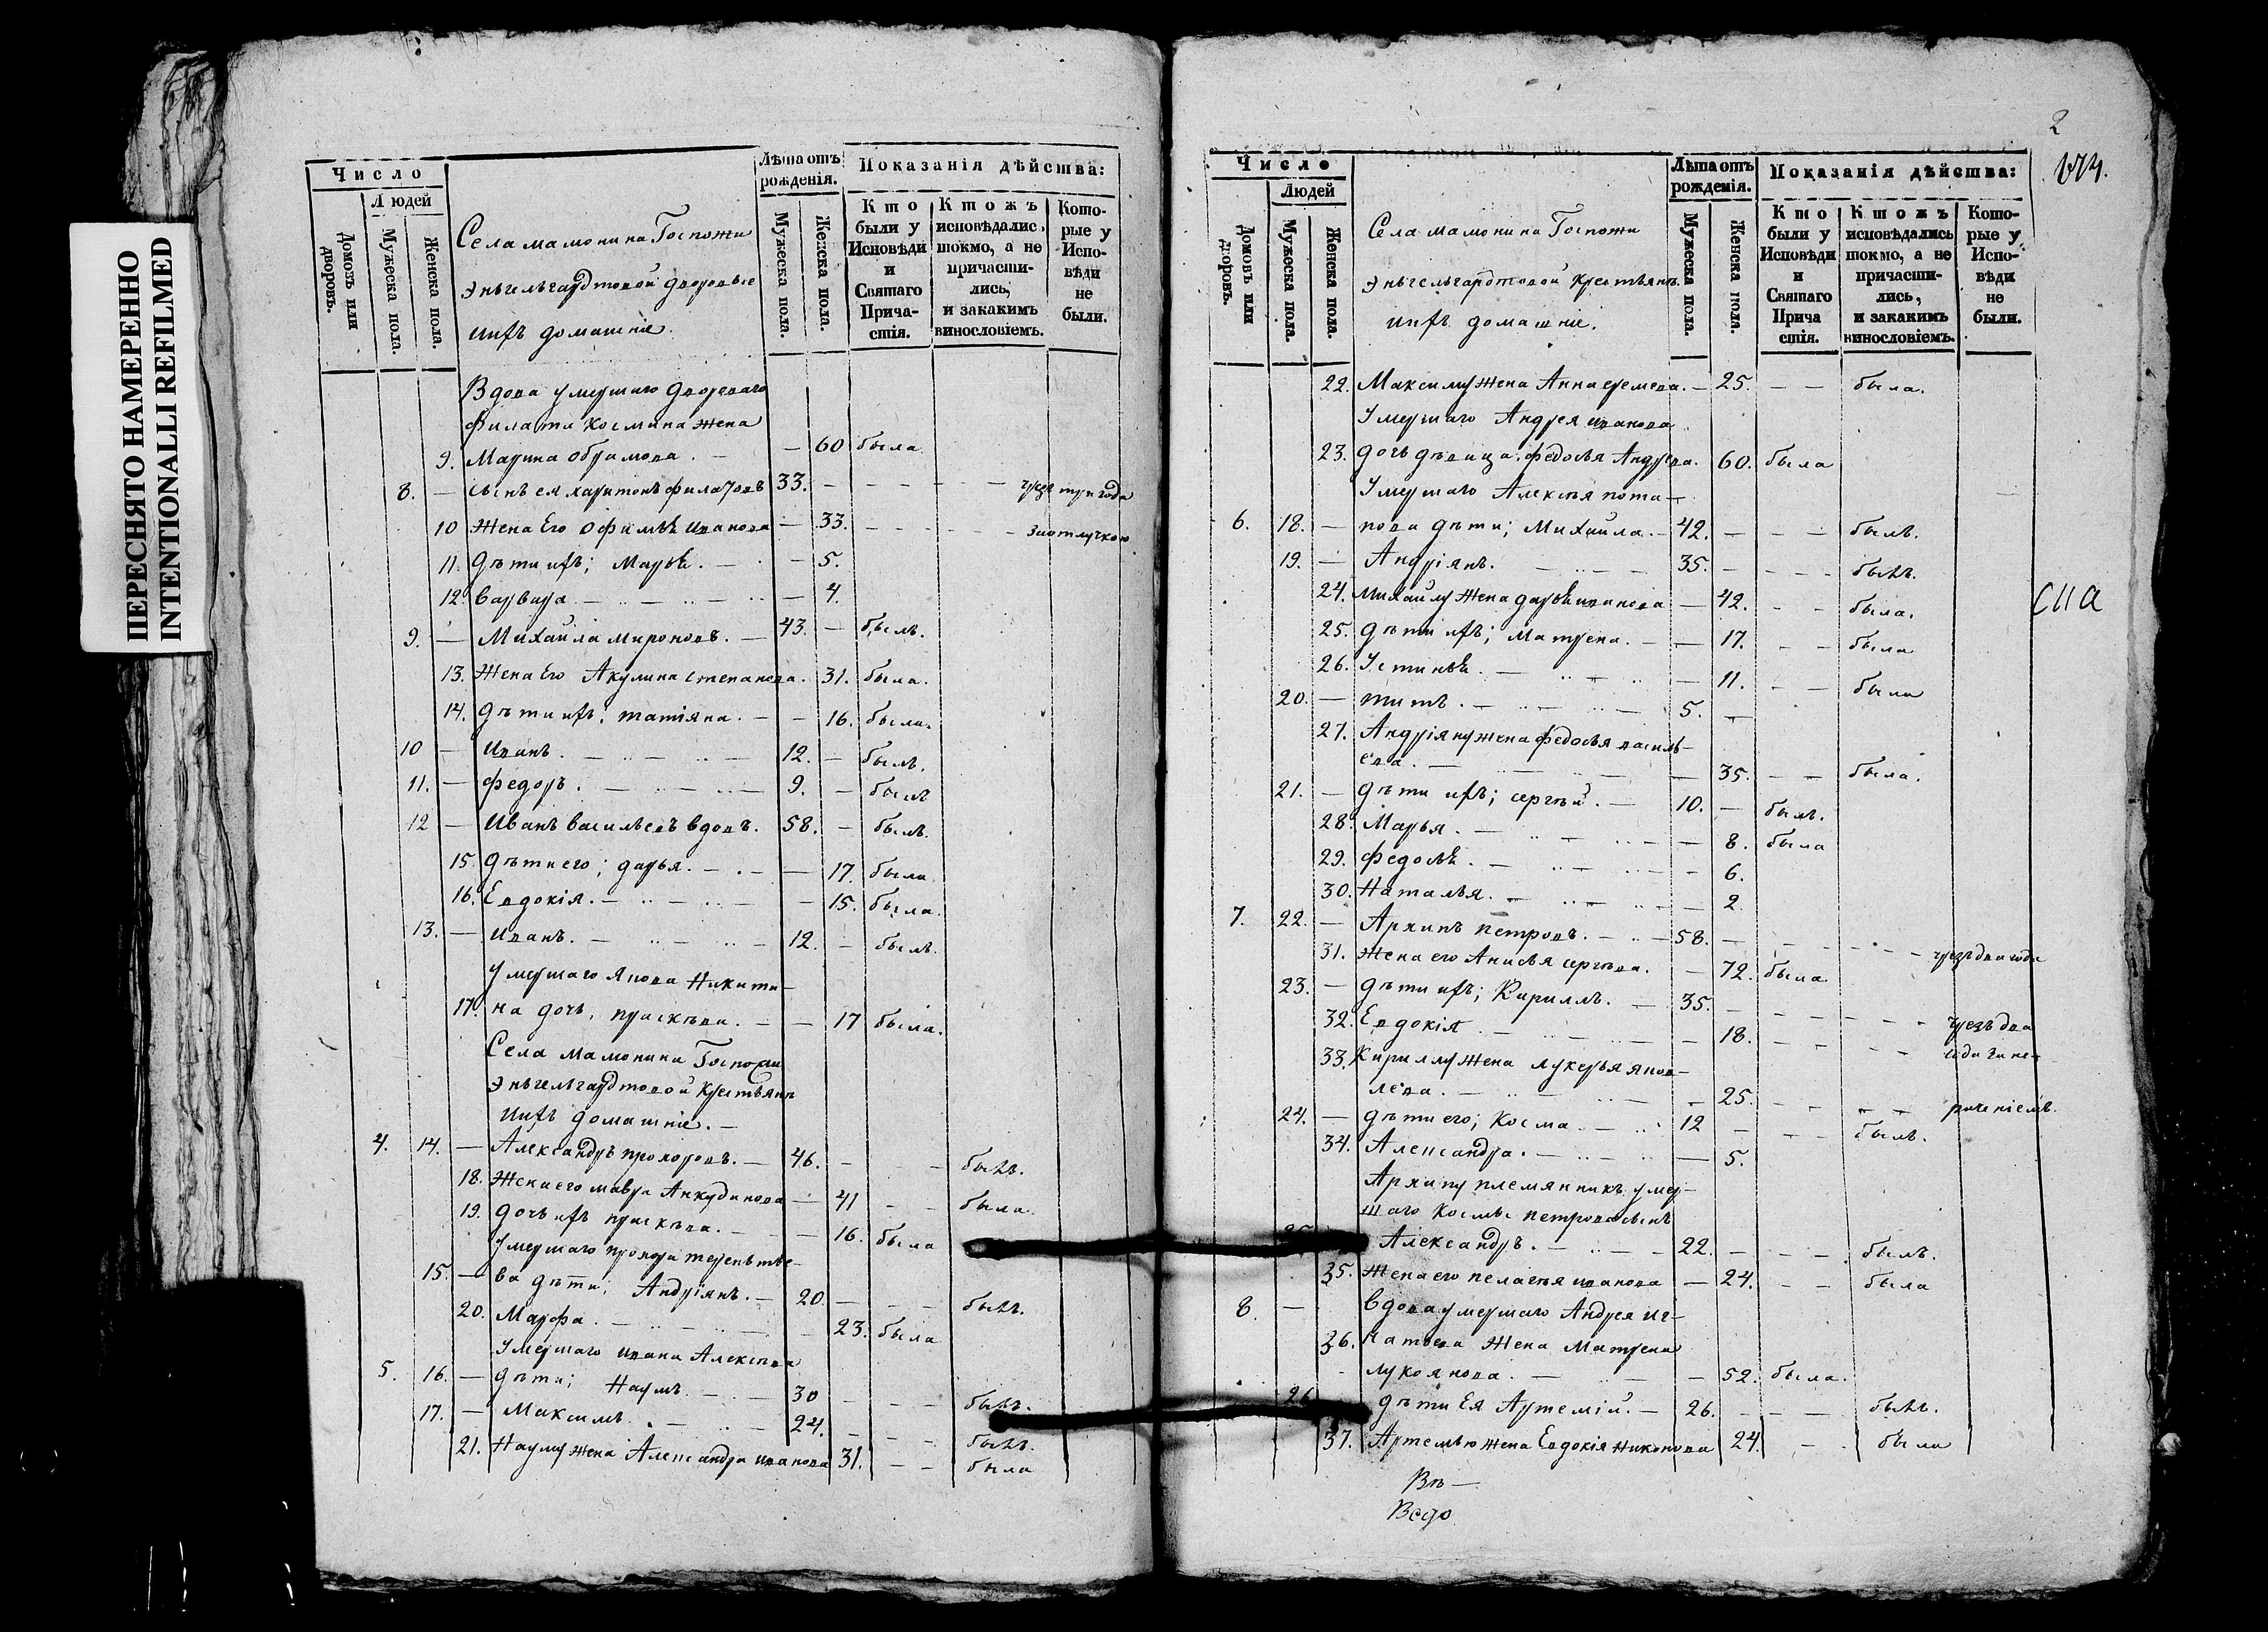 ПЕРЕСНЯТО НАМЕРЕННО
INTENTIONALLI REFILMED
Число
Людей
Домовъ или дворовъ.
Мужеска пола.
Женска пола.
Села мамонина Госпожи
Энъгельгардтовой дворовые
ихъ домашніе.
Лѣта отъ рожденія.
Мужеска пола.
Женска пола.
Показанія дѣйства:
Кто были у Исповѣди и Святаго Причастія.
Ктожъ исповѣдались токмо, а не причастились, и закакимъ винословіемъ.
Которые у Исповѣди не были.
Вдова умершаго Двороваго
Филата Космина жена
9. Марина Обрамова. — — 60 была
8. — сынъ ея харитонъ филатовъ 33. — чрез три года
10 Жена Его Офимья Иванова — 33. — заотлучкою
11. Дѣти ихъ; Марья. — — 5.
12. варвара — — 4.
9. — Михайла мироновъ. — 43. — былъ.
13. Жена Его Акулина степанова. 31. была.
14. Дѣти ихъ; татіяна. — — 16. была.
10 — Иванъ. — 12. — былъ.
11. — федоръ. — 9. — былъ
12 — Иванъ васильевъ вдовъ. 58. — былъ.
15. Дѣти его; дарья. — — 17. была
16. Евдокія. — — 15. была.
13. — Иванъ. — 12. — былъ.
Умершаго Якова Никити-
17. на дочь, праскѣва. — — 17 была.
Села мамонина Госпожи
Энъгельгардтовой Крестьянъ
ихъ домашніе. —
4. 14. — Александръ прохоровъ. — 46. — — былъ.
18. Жена его мавра Анкудинова — 41 — — была.
19. Дочь ихъ праскѣва. — — 16. была
Умершаго прохора терентье-
15. — ва дѣти; Андріянъ. — 20. — — былъ.
20. Марфа. — — 23. была
Умершаго Ивана Алексѣева
5. 16. — дѣти; Наумъ. — 30 — — былъ.
17. — Максимъ. — 24. — — былъ.
21. Науму жена Александра Иванова 31. — — была
2
174.
Число
Людей
Домовъ или дворовъ.
Мужеска пола.
Женска пола.
Села мамонина Госпожи
Энъгельгардтовой Крестьянъ
ихъ домашніе.
Лѣта отъ рожденія.
Мужеска пола.
Женска пола.
Показанія дѣйства:
Кто были у Исповѣди и Святаго Причастія.
Ктожъ исповѣдались токмо, а не причастились, и закакимъ винословіемъ.
Которые у Исповѣди не были.
22. Максиму жена Анна еремева. — 25. — — была.
Умершаго Андрея иванова
23. дочь дѣвица. федосья Андрева. 60. была
Умершаго Алексѣя пота-
6. 18. — пова дѣти; Михайла. — 42. — — былъ.
19. — Андріянъ. — 35. — — былъ.
24. Михайлу жена дарья иванова — 42. — — была.
25. дѣти ихъ; матрена. — — 17. — — была
26. Устинья. — — 11. — — была
20. — титъ. — 5. —
27. Андріяну жена федосья василь-
ева. — — 35. — — была.
21. — дѣти ихъ; сергѣй. — 10. — былъ.
28. Марья. — — 8. была
29. федосья. — — 6.
30. Наталья. — — 2.
7. 22. — Архипъ петровъ. — 58. — чрезъ два года
31. Жена его Анисья сергѣва. — 72. была
23. — дѣти ихъ; Кириллъ. — 35. — чрезъ два
32. Евдокія — — 18. —
33. Кириллу жена лукерья яков-
лева. — — 25. — рачениемъ.
24. — дѣти его; Косма. — 12 — — былъ.
34. Александра. — — 5.
Архипу племянникъ умер-
шаго Космы петрова сынъ
25. Александръ. — 22. — — былъ.
35. Жена его пелагея иванова — 24. — — была
8. — вдова умершаго Андрея иг-
36. натьева Жена Матрена
лукоянова. — — 52. была.
26. дѣти Ея Артемій. — 26. — — былъ.
37. Артемью жена Евдокія Никонова 24. — была
США
Въ —